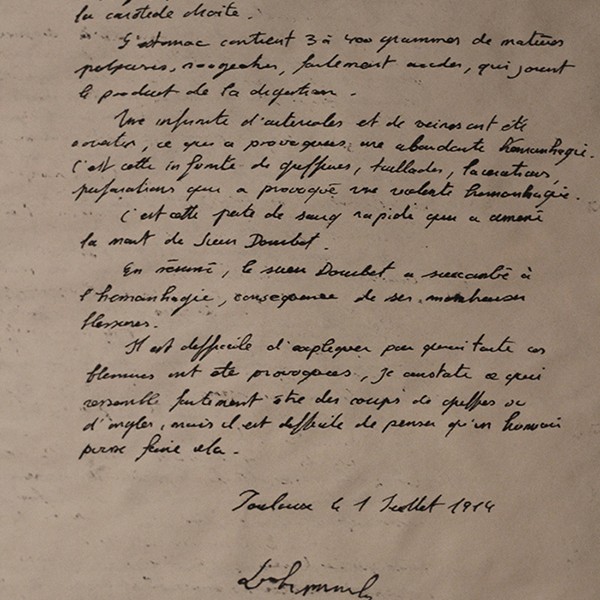 la carotide droite.
L'estomac contient 3 à 400 grammes de matières
rougeâtres, fortement acides, qui sont
le produit de la digestion.
Une infinité d'artérioles et de veines ont été
ouvertes, ce qui a provoqué une abondante hémorrhagie.
C'est cette infinité de griffures, taillades, lacérations,
perforations qui a provoqué une violente hémorrhagie.
C'est cette perte de sang rapide qui a amené
la mort de Sieur Doumbet.
En résumé, le sieur Doumbet a succombé à
l'hémorrhagie, conséquence de ses nombreuses
blessures.
Il est difficile d'expliquer par quoi toutes ces
blessures ont été provoquées, je constate ce qui
ressemble fortement être des coups de griffes ou
d'ongles, mais il est difficile de penser qu'un humain
puisse faire cela.
Toulouse le 1 Juillet 1914